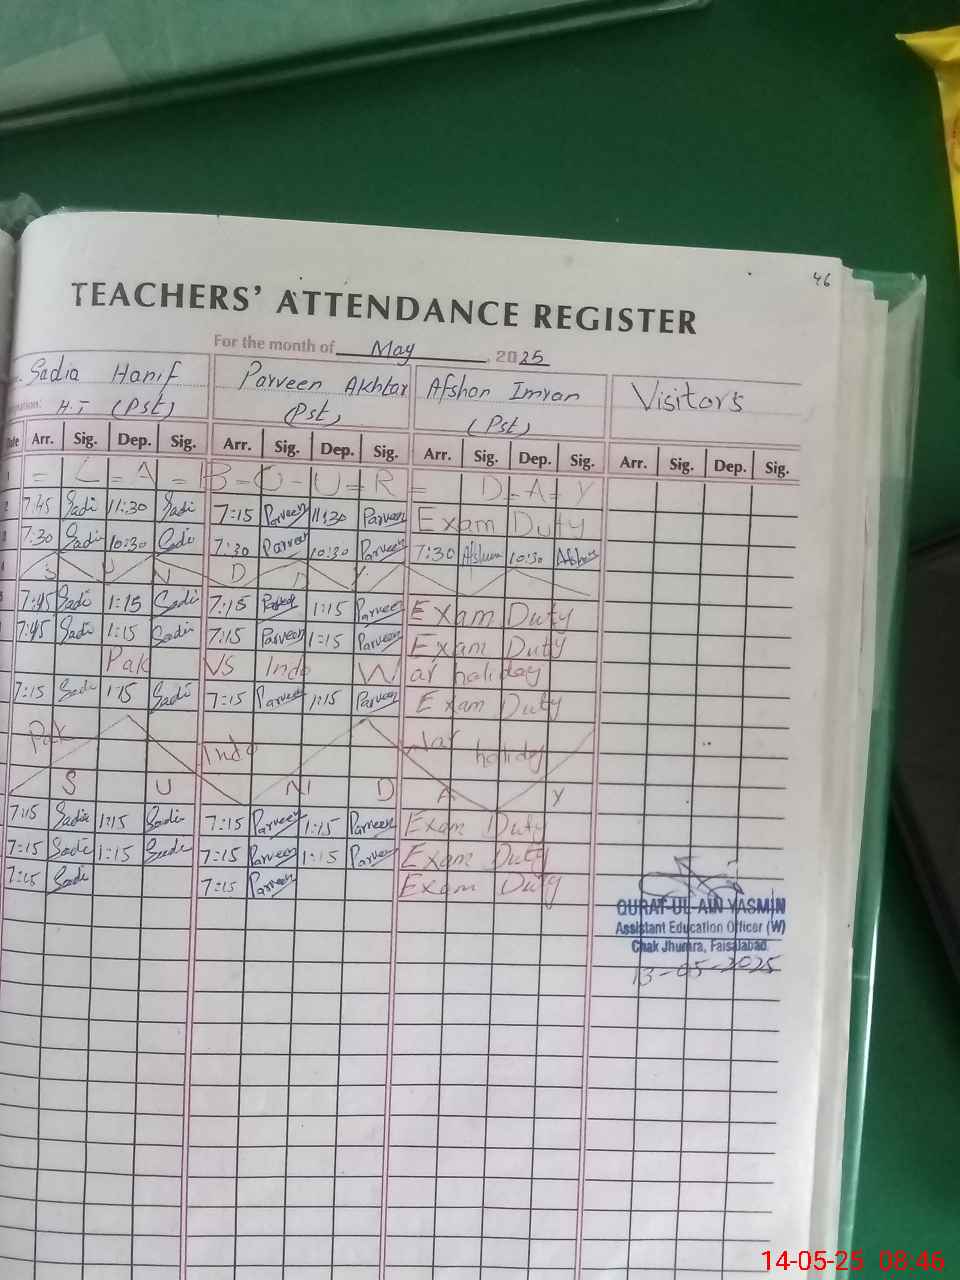 46
TEACHERS' ATTENDANCE REGISTER
For the month of May, 2025
Sadia Hanif Parveen Akhtar Afshan Imran Visitors
H.T (Pst) (Pst) (Pst)
Date Arr. Sig. Dep. Sig. Arr. Sig. Dep. Sig. Arr. Sig. Dep. Sig. Arr. Sig. Dep. Sig.
1 = L = A = B = O - U = R = D = A = Y
2 7:45 Sadi 11:30 Sadi 7:15 Parveen 11:30 Parveen Exam Duty
3 7:30 Sadi 10:30 Sadi 7:30 Parveen 10:30 Parveen 7:30 Afshan 10:30 Afshan
4 S U N D A Y
5 7:45 Sadi 1:15 Sadi 7:15 Parveen 1:15 Parveen Exam Duty
7:45 Sadi 1:15 Sadi 7:15 Parveen 1:15 Parveen Exam Duty
Pak VS Indo War holiday
7:15 Sadi 1:15 Sadi 7:15 Parveen 1:15 Parveen Exam Duty
Pak Indo War holiday
S U N D A Y
7:15 Sadia 1:15 Sadi 7:15 Parveen 1:15 Parveen Exam Duty
7:15 Sadi 1:15 Sadi 7:15 Parveen 1:15 Parveen Exam Duty
7:15 Sadi 7:15 Parveen Exam Duty
QURAT-UL-AIN YASMIN
Assistant Education Officer (W)
Chak Jhumra, Faisalabad
13-05-2025
14-05-25 08:46